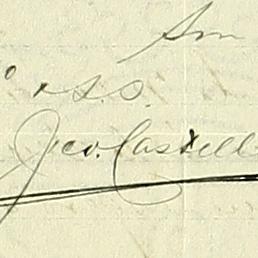 Am
° & S. S.
Geo. Castell